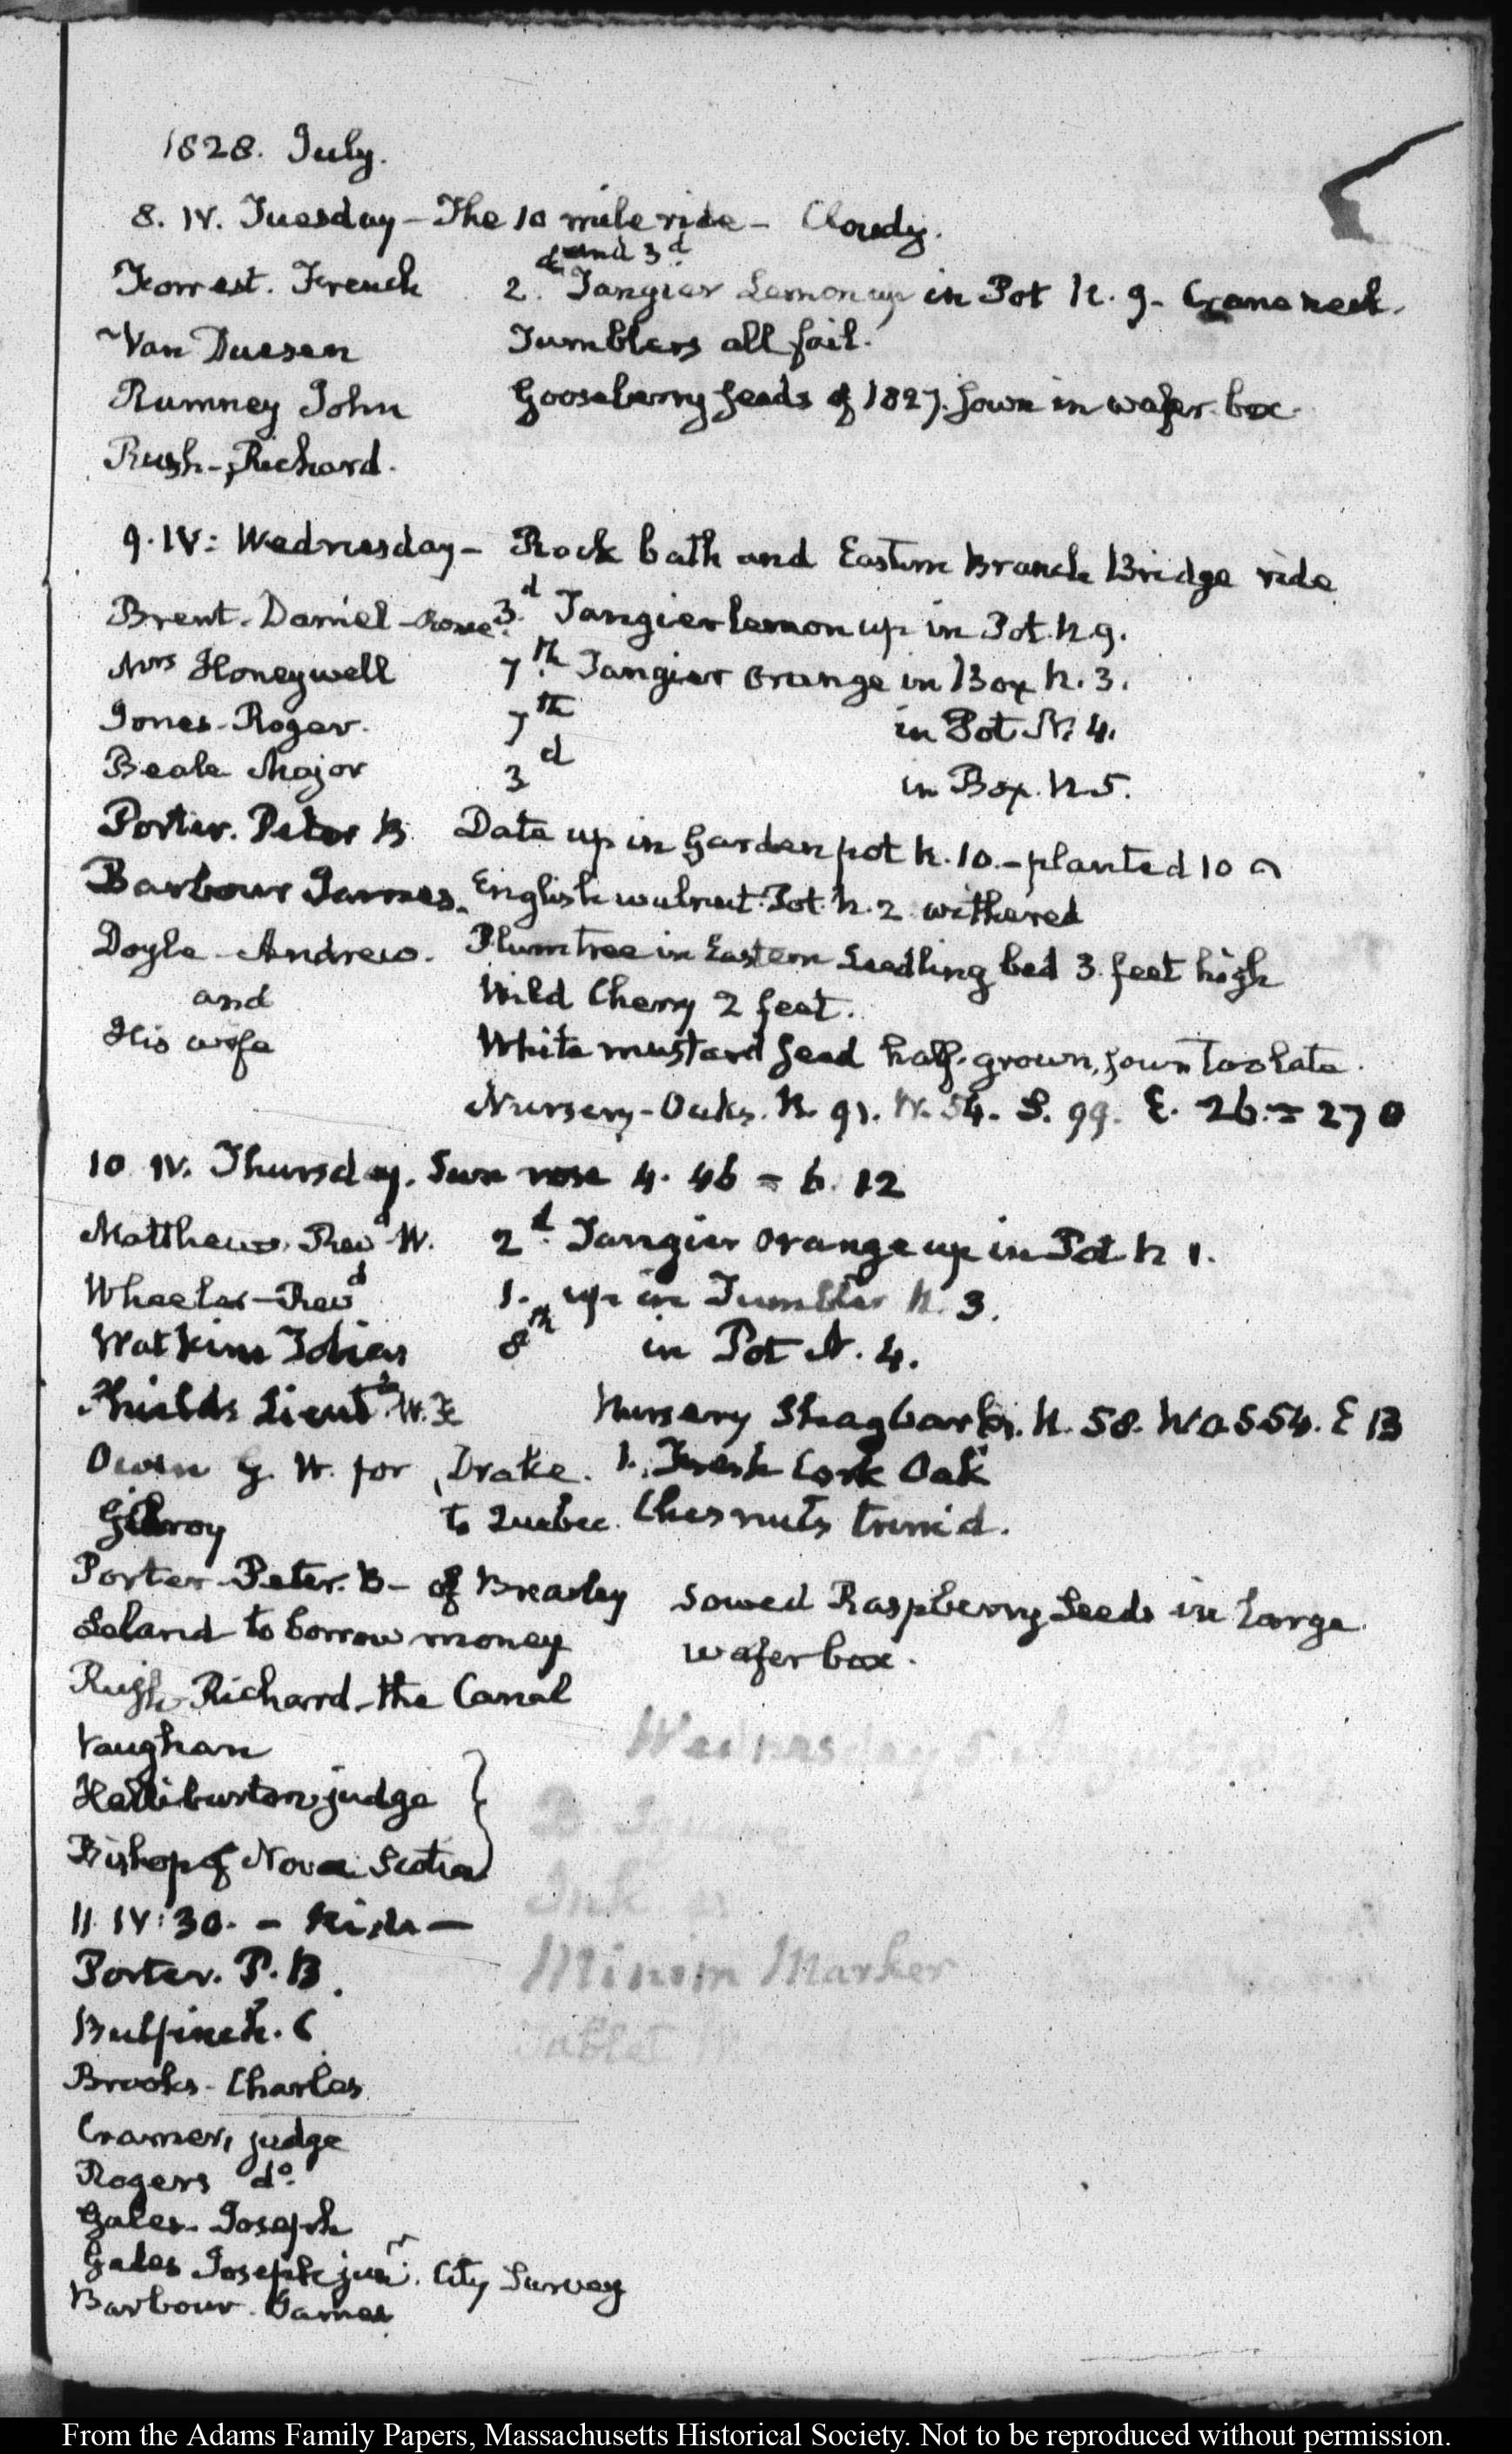 1828. July.
8. IV. Tuesday – The 10 mile ride – Cloudy.
Forrest. French 2.d and 3.d Tangier Lemon up in Pot N. 9 – Crane neck.
Van Deusen Tumblers all fail.
Rumney John Gooseberry seeds of 1827. sown in wafer box.
Rush – Richard.
9. IV: Wednesday – Rock bath and Eastern Branch Bridge ride
Brent. Daniel – 3.d Tangier lemon up in Pot. N. 9.
Mrs Honeywell 7.th Tangier Orange in Box N. 3.
Jones – Roger. 7th in Pot N. 4.
Beale Major 3d in Box. N 5.
Porter. Peter B. Date up in Garden pot N. 10. – planted 10
Barbour James. English walnut. Pot. N. 2 withered
Doyle – Andrew. Plum tree in Eastern Seedling bed 3 feet high
and Wild Cherry 2 feet.
His wife White mustard seed half-grown, sown too late.
Nursery – Oaks. N. 91. W. 54. S. 99. E. 26. = 270
10 IV. Thursday. Sun rose 4. 46 = 6. 12
Matthews. Revd W. 2d. Tangier Orange up in Pot N 1.
Wheeler – Revd 1. up in Tumbler N. 3.
Watkins Tobias 8th in Pot N. 4.
Shields Lieut.t W. F. Nursery Shagbarks. N. 58. W 0. S 54. E 13
Owen G. W. for Drake. 1. Fresh Cork Oak
Gilroy to Quebec. Chesnuts trimd.
Porter – Peter. B – of Brearley Sowed Raspberry Seeds in large
Leland to borrow money wafer box.
Rush – Richard – the Canal
Vaughan
Halliburton judge
Bishop of Nova Scotia
11. IV: 30. – Ride –
Porter. P. B.
Bulfinch. C
Brooks – Charles
Cramer, judge
Rogers do.
Gales – Joseph
Gales Joseph junr. City Survey
Barbour. James
Minim Marker
From the Adams Family Papers, Massachusetts Historical Society. Not to be reproduced without permission.